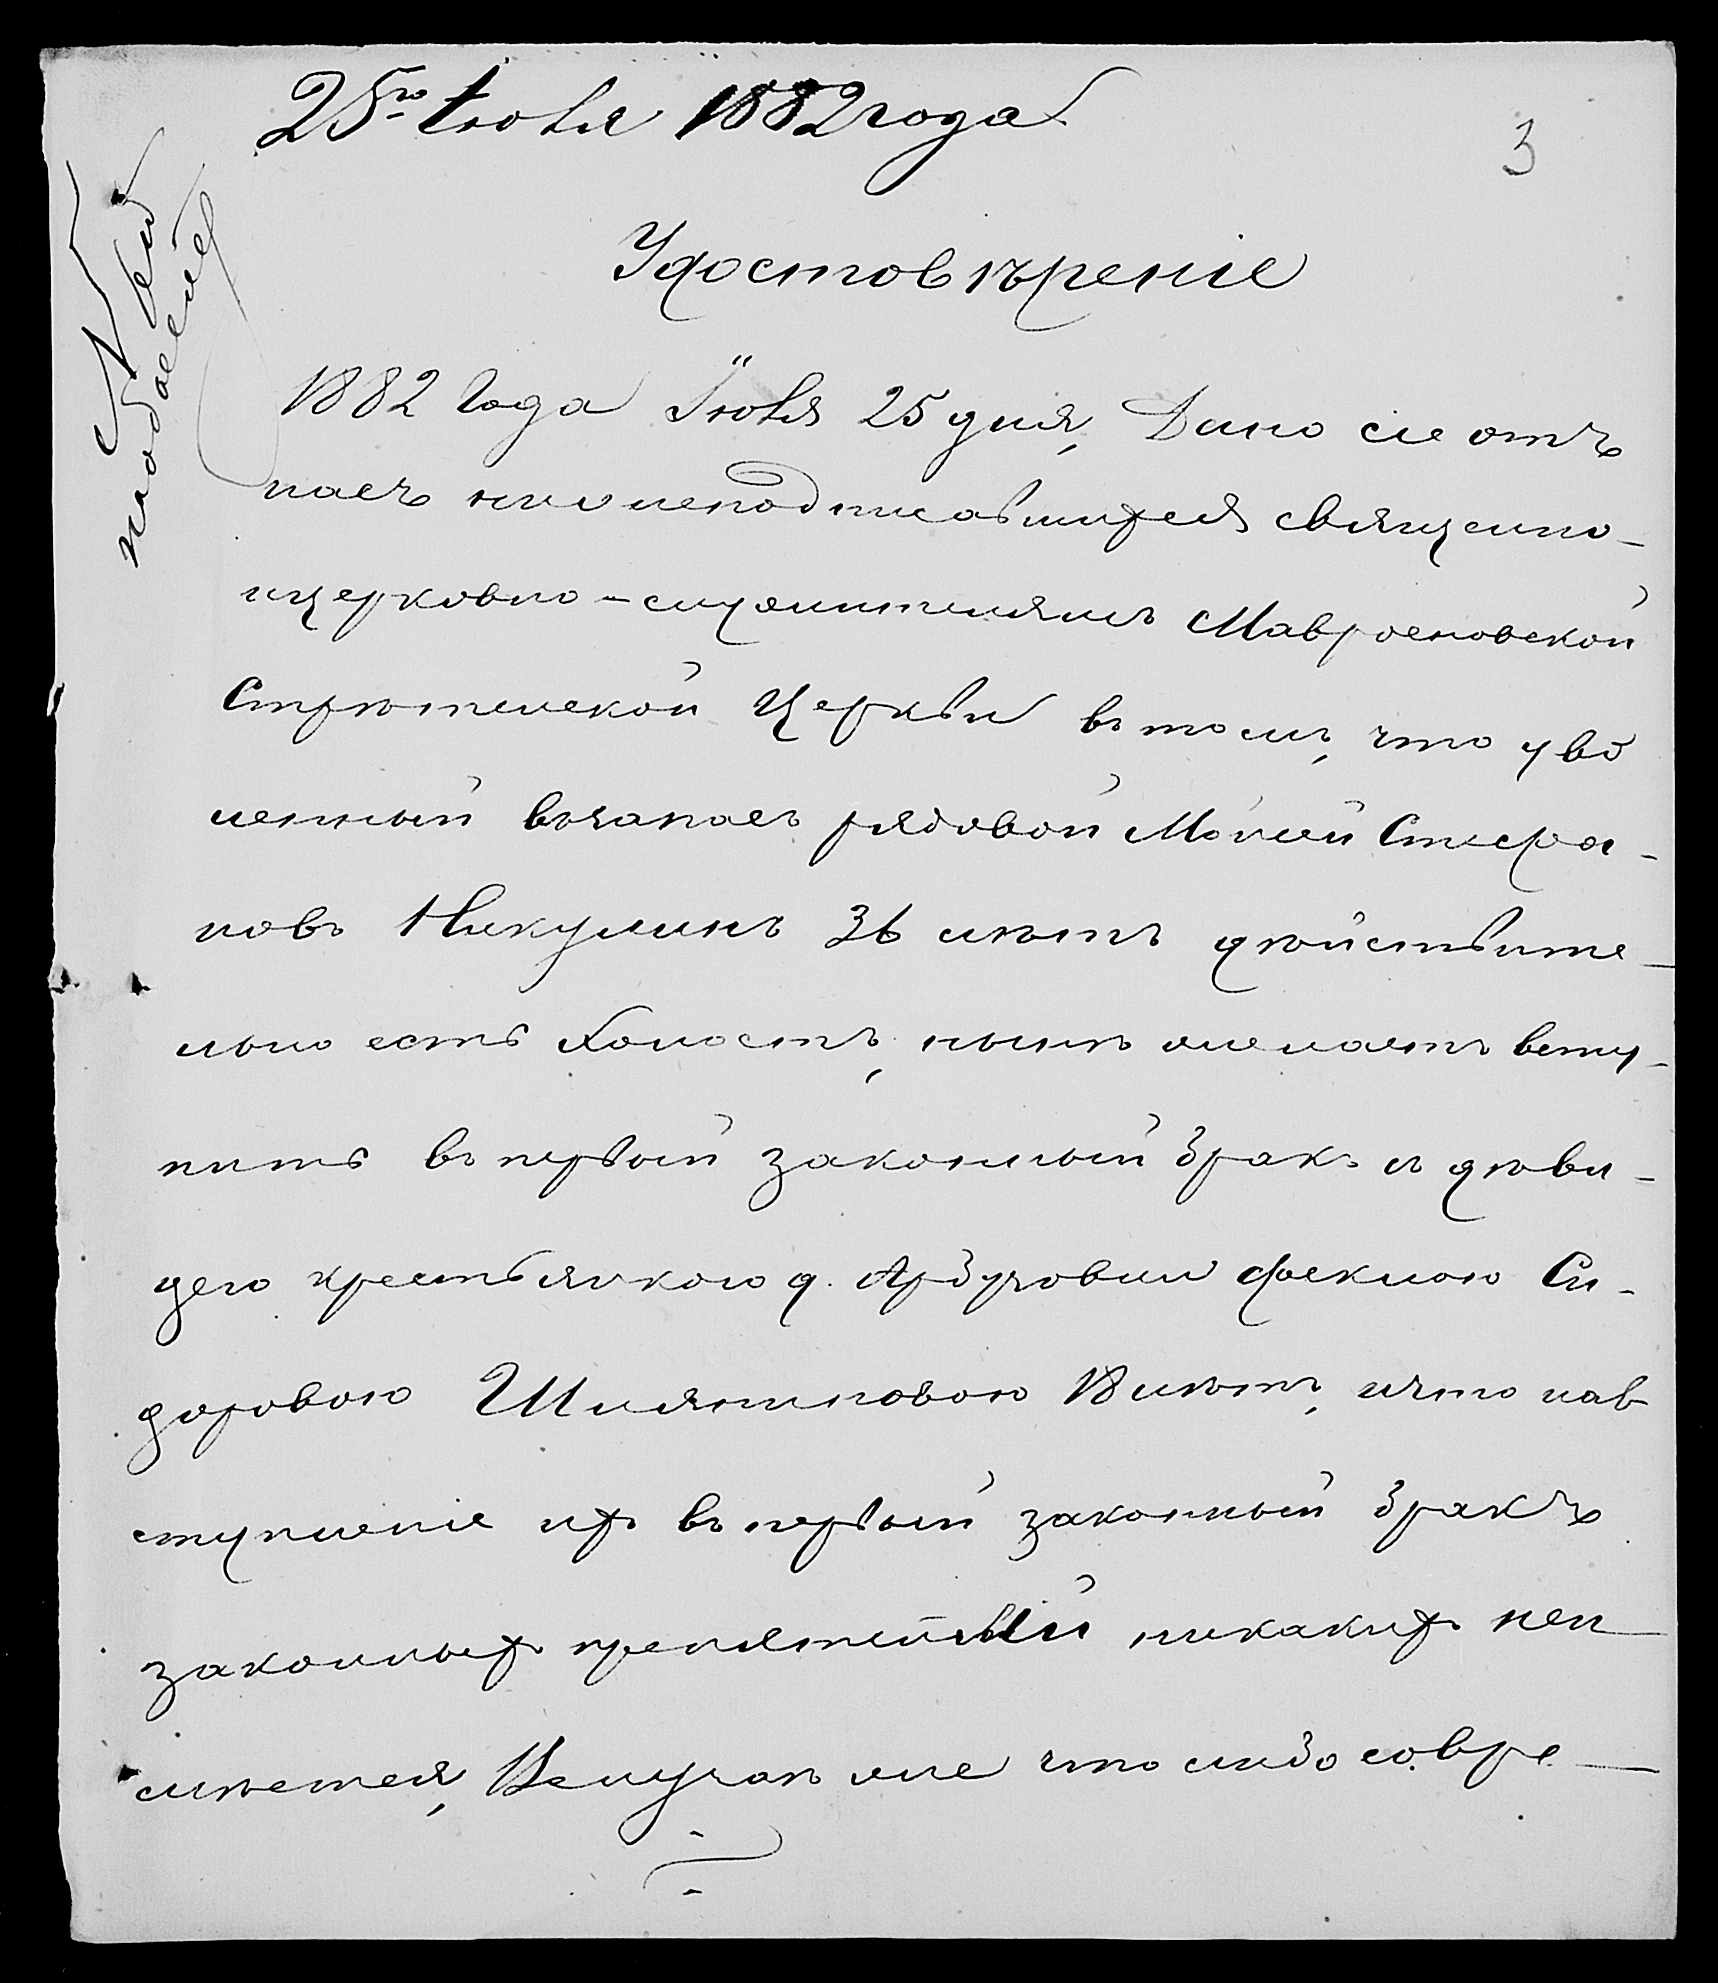 25го Іюля 1882 года
3
Удостовѣреніе
1882 Года Іюля 25 дня, Дано сіе отъ
насъ нижеподписавшихся священно-
ицерковно-служителямъ Мавринской
Стрѣтенской Церкви въ томъ, что уво
ленный въ запасъ рядовой Мойсей Стефа-
новъ Никулинъ 36 лѣтъ дѣйствите-
льно есть Холостъ, нынѣ желаетъ всту-
пить въ первый законный бракъ съ дѣви-
цею крестьянкою д. Арбузовки Феклою Си-
доровою Шиляниковою 18 лѣтъ, и что нав
ступленіе ихъ въ первый законный бракъ
законныхъ препятствій никакихъ неи
мѣется, Вслучаѣ же что либо совре